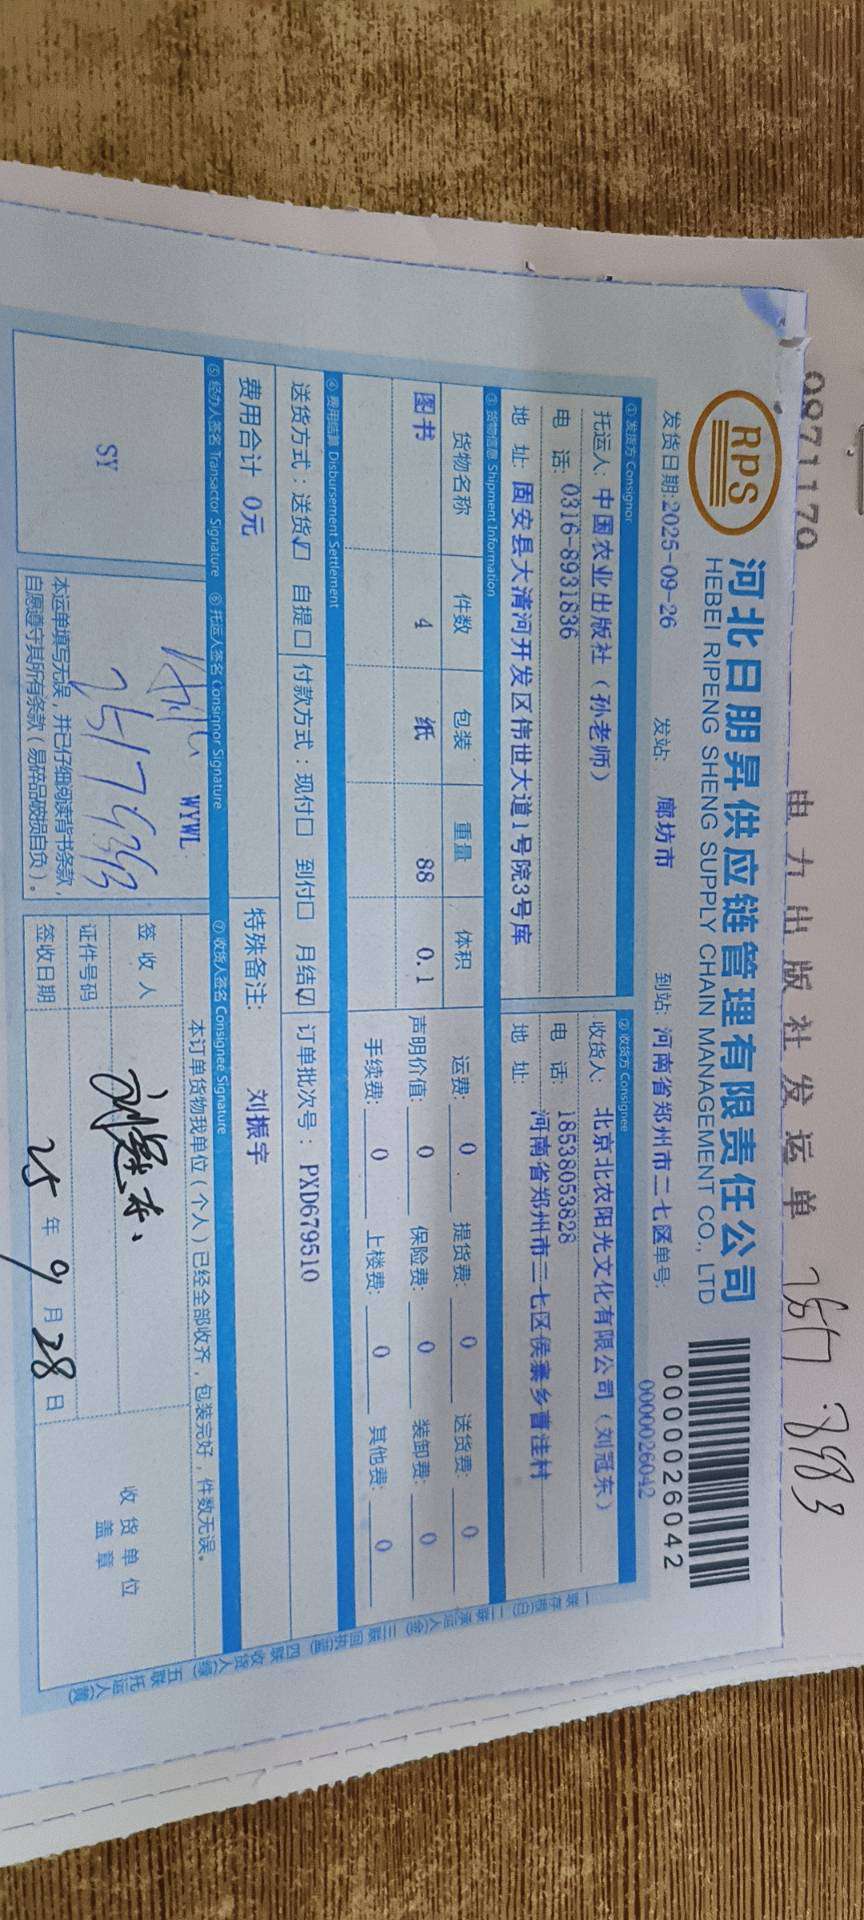 0971170
电力出版社发运单
RPS
河北日朋昇供应链管理有限责任公司
HEBEI RIPENG SHENG SUPPLY CHAIN MANAGEMENT CO., LTD
0000026042
发货日期:2025-09-26 发站: 廊坊市 到站: 河南省郑州市二七区 单号: 0000026042
① 发货方 Consignor
托运人: 中国农业出版社(孙老师)
电 话: 0316-8931836
地 址: 固安县大清河开发区伟世大道1号院3号库
② 收货方 Consignee
收货人: 北京北农阳光文化有限公司(刘冠东)
电 话: 18538053828
地 址: 河南省郑州市二七区侯寨乡曹洼村
③ 货物信息 Shipment Information
货物名称 件数 包装 重量 体积
图书 4 纸 88 0.1
运费: 0 提货费: 0 送货费: 0
声明价值: 0 保险费: 0 装卸费: 0
手续费: 0 上楼费: 0 其他费: 0
④ 费用结算 Disbursement Settlement
送货方式: 送货☑ 自提□ 付款方式: 现付□ 到付□ 月结☑ 订单批次号: PXD679510
费用合计 0元 特殊备注: 刘振宇
⑤ 经办人签名 Transactor Signature ⑥ 托运人签名 Consignor Signature ⑦ 收货人签名 Consignee Signature
SY
WYWL
本运单填写无误,并已仔细阅读背书条款,
自愿遵守其所有条款(易碎品破损自负)。
本订单货物我单位(个人)已经全部收齐,包装完好,件数无误。
签 收 人
证件号码
签收日期 25 年 9 月 28 日
收 货 单 位
盖 章
一联存根(白) 二联承运人(金) 三联回执(蓝) 四联收货人(绿) 五联托运人(黄)